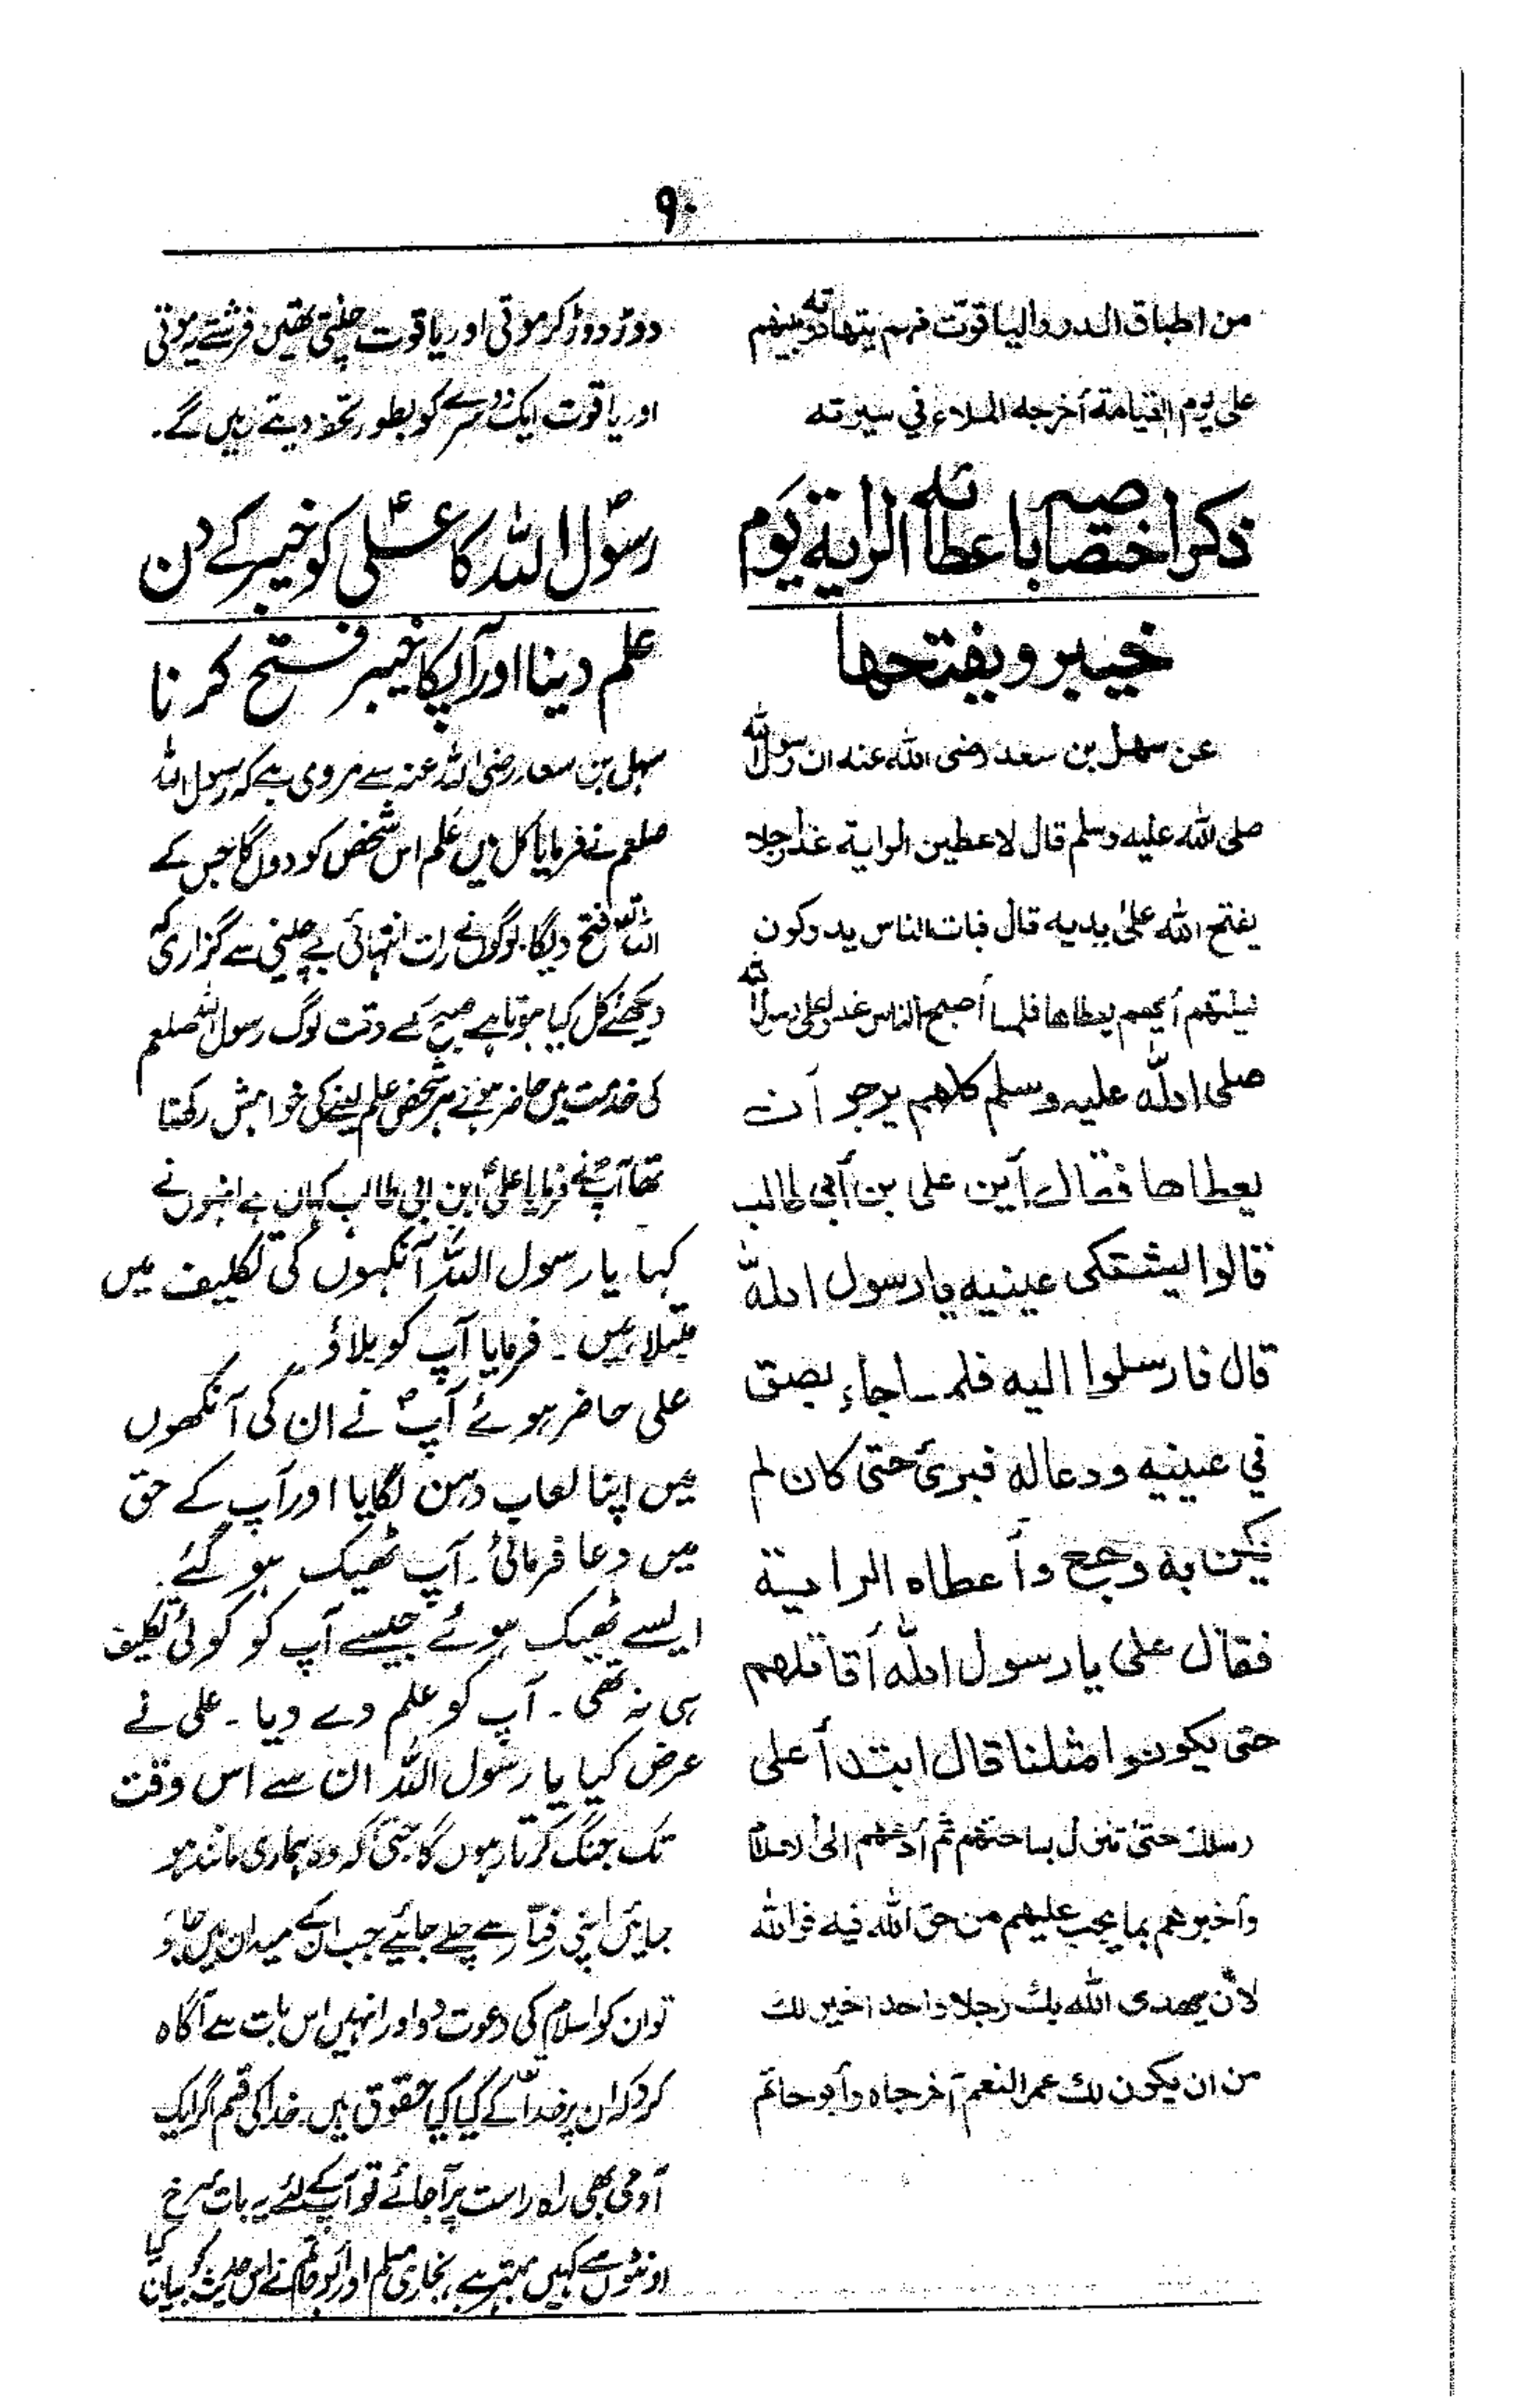 ۹۰
من اطباق الدر والیاقوت فهم یتهادونه بینهم
علی یوم القیامة أخرجه الملاء في سیرته
ذکر اختصاصه باعطائه الرایة یوم
خیبر و یفتحها
عن سهل بن سعد رضی الله عنه ان رسول الله
صلی الله علیه وسلم قال لاعطین الرایة غداً رجلا
یفتح الله علیٰ یدیه قال فبات الناس یدوکون
لیلتهم أیهم یعطاها فلما أصبح الناس غدوا علی رسول الله
صلی الله علیه وسلم کلاهم یرجو أن
یعطاها فقال أین علی بن أبی طالب
قالوا یشتکی عینیه یا رسول الله
قال فارسلوا الیه فلما جاء بصق
في عینیه ودعا له فبرئ حتی کان لم
یکن به وجع وأعطاه الرایة
فقال علی یا رسول الله أقاتلهم
حتی یکونوا مثلنا قال ابتدأ علی
رسلك حتیٰ تنزل بساحتهم ثم أدعهم الیٰ
وأخبرهم بما یجب علیهم من حق الله فیه فوالله
لأن یهدی الله بك رجلا واحدا خیر لك
من ان یکون لك عمر النعم أخرجاه وأبو حاتم
دوڑ دوڑ کر موتی اور یاقوت چنتی تھیں فرشتے یہ موتی
اور یاقوت ایک دوسرے کو بطور تحفہ دیتے رہیں گے۔
رسولؐ اللہ کا علیؑ کو خیبر کے دن
علم دینا اور آپ کا خیبر فتح کرنا
سہل بن سعد رضی اللہ عنہ سے مروی ہے کہ رسول اللہ
صلعم نے فرمایا کل میں علم اس شخص کو دوں گا جس کے
فتح دیگا۔ لوگوں نے رات انتہائی بے چینی سے گزاری کہ
دیکھئے کل کیا ہوتا ہے صبح کے وقت لوگ رسول اللہ صلعم
کی خدمت میں حاضر ہوئے ہر شخص علم لینے کی خواہش رکھتا
تھا آپؐ نے فرمایا علیؑ ابن ابی طالب کہاں ہے انہوں نے
کہا یا رسول اللہؐ آنکہوں کی تکلیف میں
مبتلا ہیں۔ فرمایا آپ کو بلاؤ۔
علی حاضر ہوئے آپؐ نے ان کی آنکھوں
میں اپنا لعاب دہن لگایا اور آپ کے حق
میں دعا فرمائی۔ آپ ٹھیک ہو گئے۔
ایسے ٹھیک ہوئے جیسے آپ کو کوئی تکلیف
ہی نہ تھی۔ آپ کو علم دے دیا۔ علی نے
عرض کیا یا رسول اللہ ان سے اس وقت
تک جنگ کرتا رہوں گا حتیٰ کہ وہ ہماری مانند ہو
جائیں اپنی رفتار سے چلے جائیے جب ان کے میدان میں جاؤ
تو ان کو اسلام کی دعوت دو اور انہیں اس بات سے آگاہ
کردو کہ ان پر خدا کے کیا کیا حقوق ہیں۔ خدا کی قسم اگر ایک
آدمی بھی راہ راست پر آجائے تو آپ کے لئے یہ بات سرخ
اونٹوں سے کہیں بہتر ہے۔ بخاری مسلم اور ابو حاتم نے اس حدیث کو بیان کیا